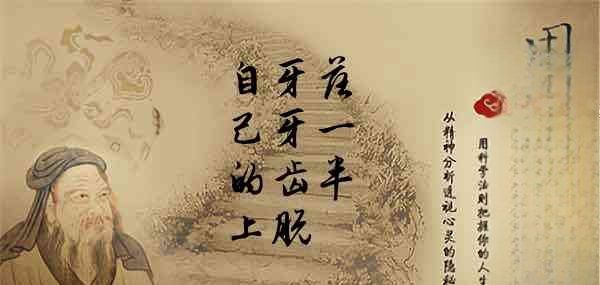 自己的上
牙牙齿脱
落一半
用科学法则把握你的人生
从精神分析透视心灵的隐秘